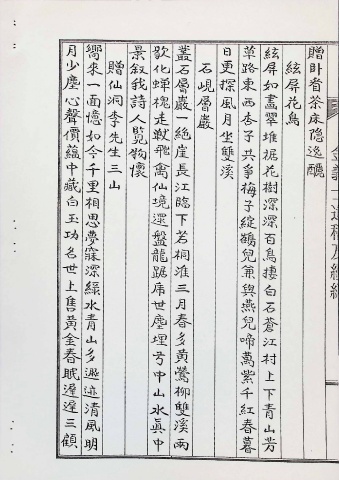 贈卧者茶床隐逸醲
絃屏花鳥
絃屏如畫翠堆裾花樹深深百鳥捿白石蒼江村上下青山芳
草路東西杏子共爭梅子綻鶴兒兼與燕兒啼萬紫千紅春暮
日更探風月坐雙溪
石峴層巖
叢石層巖一絶崖長江臨下若桐淮三月春多黃鶯柳雙溪雨
歇化蟬槐走獸飛禽仙境還盤龍踞席世塵埋兮中山水眞中
景叙我詩人覧物懷
贈仙洞李先生三山
嚮來一面憶如今千里相思夢寐深綠水青山多遯迹清風明
月少塵心聲價蘊中藏白玉功名世上售黃金春眠遲遲三顧